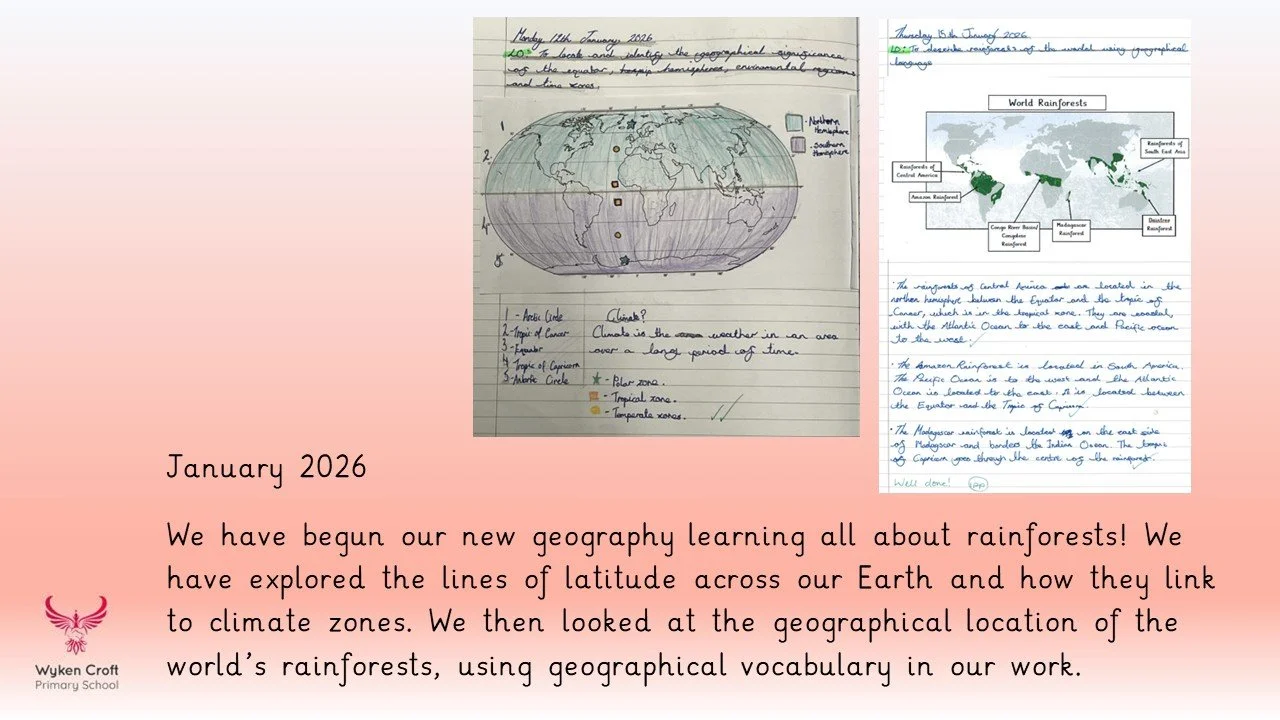 Monday 12th January, 2026
LO: To locate and identify the geographical significance
of the equator, hemispheres, enviromental regions
and time zones.
1
2
4
5
Northern
Hemisphere
Southern
Hemisphere
1 - Arctic Circle
2 - Tropic of Cancer
3 - Equator
4 Tropic of Capricorn
5 - Antartic Circle
Climate?
Climate is the weather in an area
over a long period of time.
- Polar zone.
- Tropical zone.
- Temperate zones.
Thursday 15th January 2026
LO: To describe rainforests of the world using geographical
language
World Rainforests
Rainforests of
Central America
Amazon Rainforest
Congo River Basin/
Congolese
Rainforest
Madagascar
Rainforest
Rainforests of
South East Asia
Daintree
Rainforest
• The rainforests of Central America are located in the
northen hemisphere between the Equator and the tropic of
Cancer, which is in the tropical zone. They are coastal,
with the Atlantic Ocean to the east and Pacific ocean
to the west.
• The Amazon Rainforest is located in South America.
The Pacific Ocean is to the west and the Atlantic
Ocean is located to the east. It is located between
the Equator and the Tropic of Capricorn.
• The Madagascar rainforest is located on the east side
of Madagascar and borders the Indian Ocean. The tropic
of Capricorn goes through the centre of the rainforest.
Well done!
January 2026
We have begun our new geography learning all about rainforests! We
have explored the lines of latitude across our Earth and how they link
to climate zones. We then looked at the geographical location of the
world's rainforests, using geographical vocabulary in our work.
Wyken Croft
Primary School